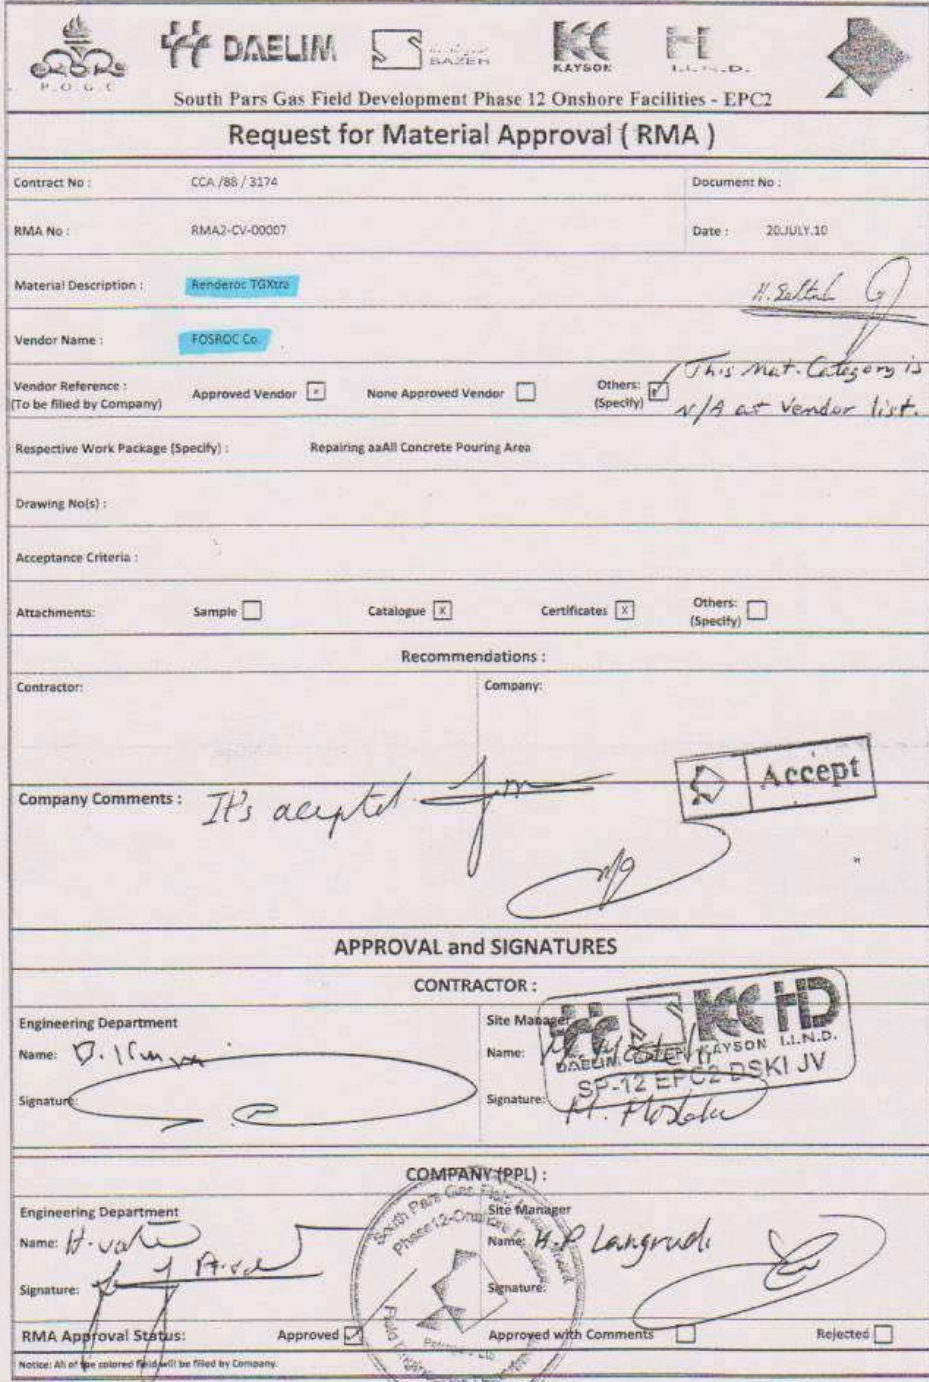 P.O.G.C
DAELIM
SAZEH
KAYSON
I.I.N.D.
South Pars Gas Field Development Phase 12 Onshore Facilities - EPC2
Request for Material Approval ( RMA )
Contract No : CCA /88 / 3174 Document No :
RMA No : RMA2-CV-00007 Date : 20.JULY.10
Material Description : Renderoc TGXtra
Vendor Name : FOSROC Co.
Vendor Reference : (To be filed by Company) Approved Vendor x None Approved Vendor Others: (Specify)
This Mat. Category is
N/A at Vendor list.
Respective Work Package (Specify) : Repairing aaAll Concrete Pouring Area
Drawing No(s) :
Acceptance Criteria :
Attachments: Sample Catalogue x Certificates x Others: (Specify)
Recommendations :
Contractor: Company:
Accept
Company Comments : It's acepted
APPROVAL and SIGNATURES
CONTRACTOR :
Engineering Department Site Manager
Name: Name:
DAELIM SAZEH KAYSON I.I.N.D.
SP-12 EPC2 DSKI JV
Signature: Signature:
COMPANY (PPL) :
Engineering Department Site Manager
Name: Name: H.P Langrudi
Signature: Signature:
South Pars Gas Field
Phase 12-Onshore
RMA Approval Status: Approved Approved with Comments Rejected
Notice: All of the colored field will be filled by Company.